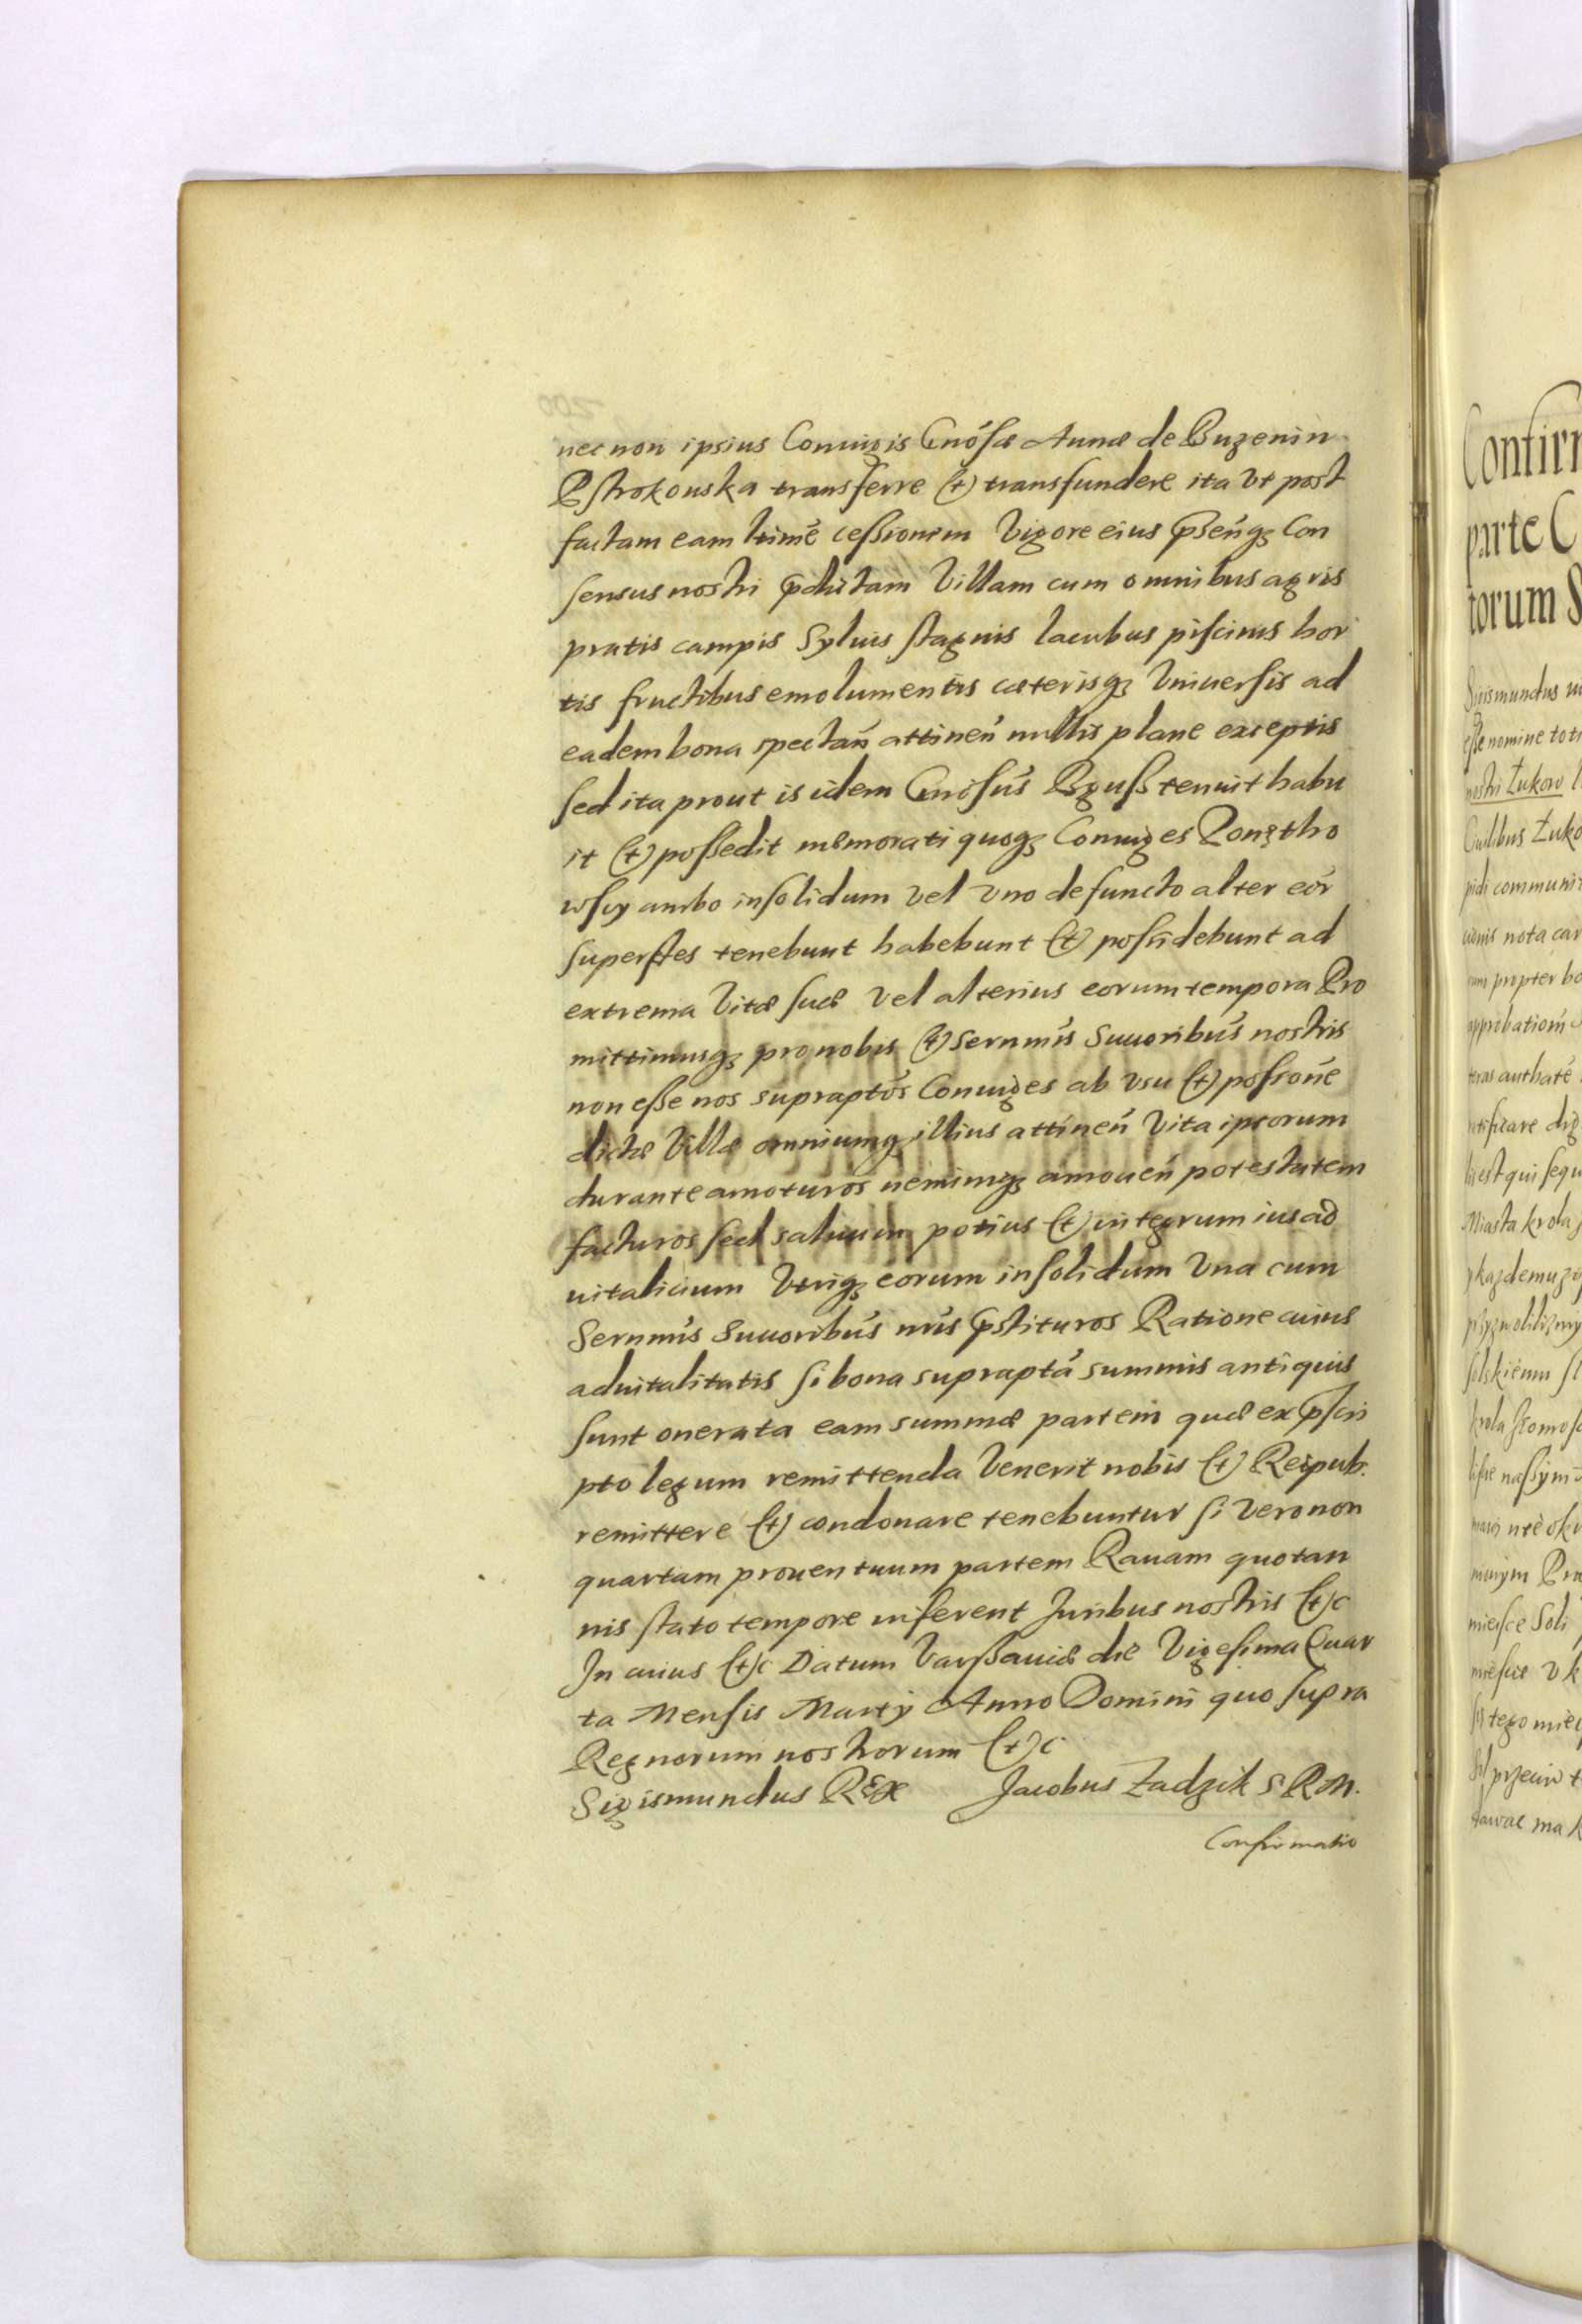 nec non ipsius Coniugis Gnósæ Annæ de Buzenin
Pstrokonska transferre (et) transfundere ita vt post
factam eam ltimē cessionem Vigore eius Pŝenq3 Con
sensus nostri p̄dictam Villam cum omnibus agris
pratis campis Syluis stagnis lacubus piscinis hor
tis fructibus emolumentis cæterisq3 Vniuersis ad
eadem bona spectań attineń nullis plane exceptis
sed ita prout is idem Gnósus Bguss tenuit habu
it (et) possedit memorati quoq3 Coniuges Ponętho
wscy ambo insolidum vel vno defuncto alter eór
superstes tenebunt habebunt (et) possidebunt ad
extrema Vitæ suæ vel alterius eorum tempora Pro
mittimusq3 pro nobis (et) Sernmís Suuoribús nostris
non esse nos supraptós Coniuges ab vsu (et) possione
dictæ Villæ omniumq3 illius attineń Vita ipsorum
durante amoturos neminiq3 amoueń potestatem
facturos sed saluum potius (et) integrum ius ad
uitalicium Vtriq3 eorum insolidum Vna cum
Sernmís Suuoribús nrís p̄stituros Ratione cuius
aduitalitatis si bona suprapta summis antiquis
sunt onerata eam summæ partem quæ ex p̄scri
pto legum remittenda Venerit nobis (et) Reipub.
remittere (et) condonare tenebuntur si vero non
quartam prouentuum partem Rauam quotan
nis stato tempore inferent Juribus nostris (et)c
In cuius (et)c Datum Varssauiæ die Vigesima Quar
ta Mensis Martÿ Anno Domini quo supra
Regnorum nostrorum (et)c
Sigismundus REX Jacobus Zadzik S. R. M.
Confirmatio
Confir
parte C
torum S
Sigismundus
esse nomine
nostri Łukow
Ciuilibus Łuko
pidi communi
nota
propter
approbationi
est qui sequ
Miasta krola